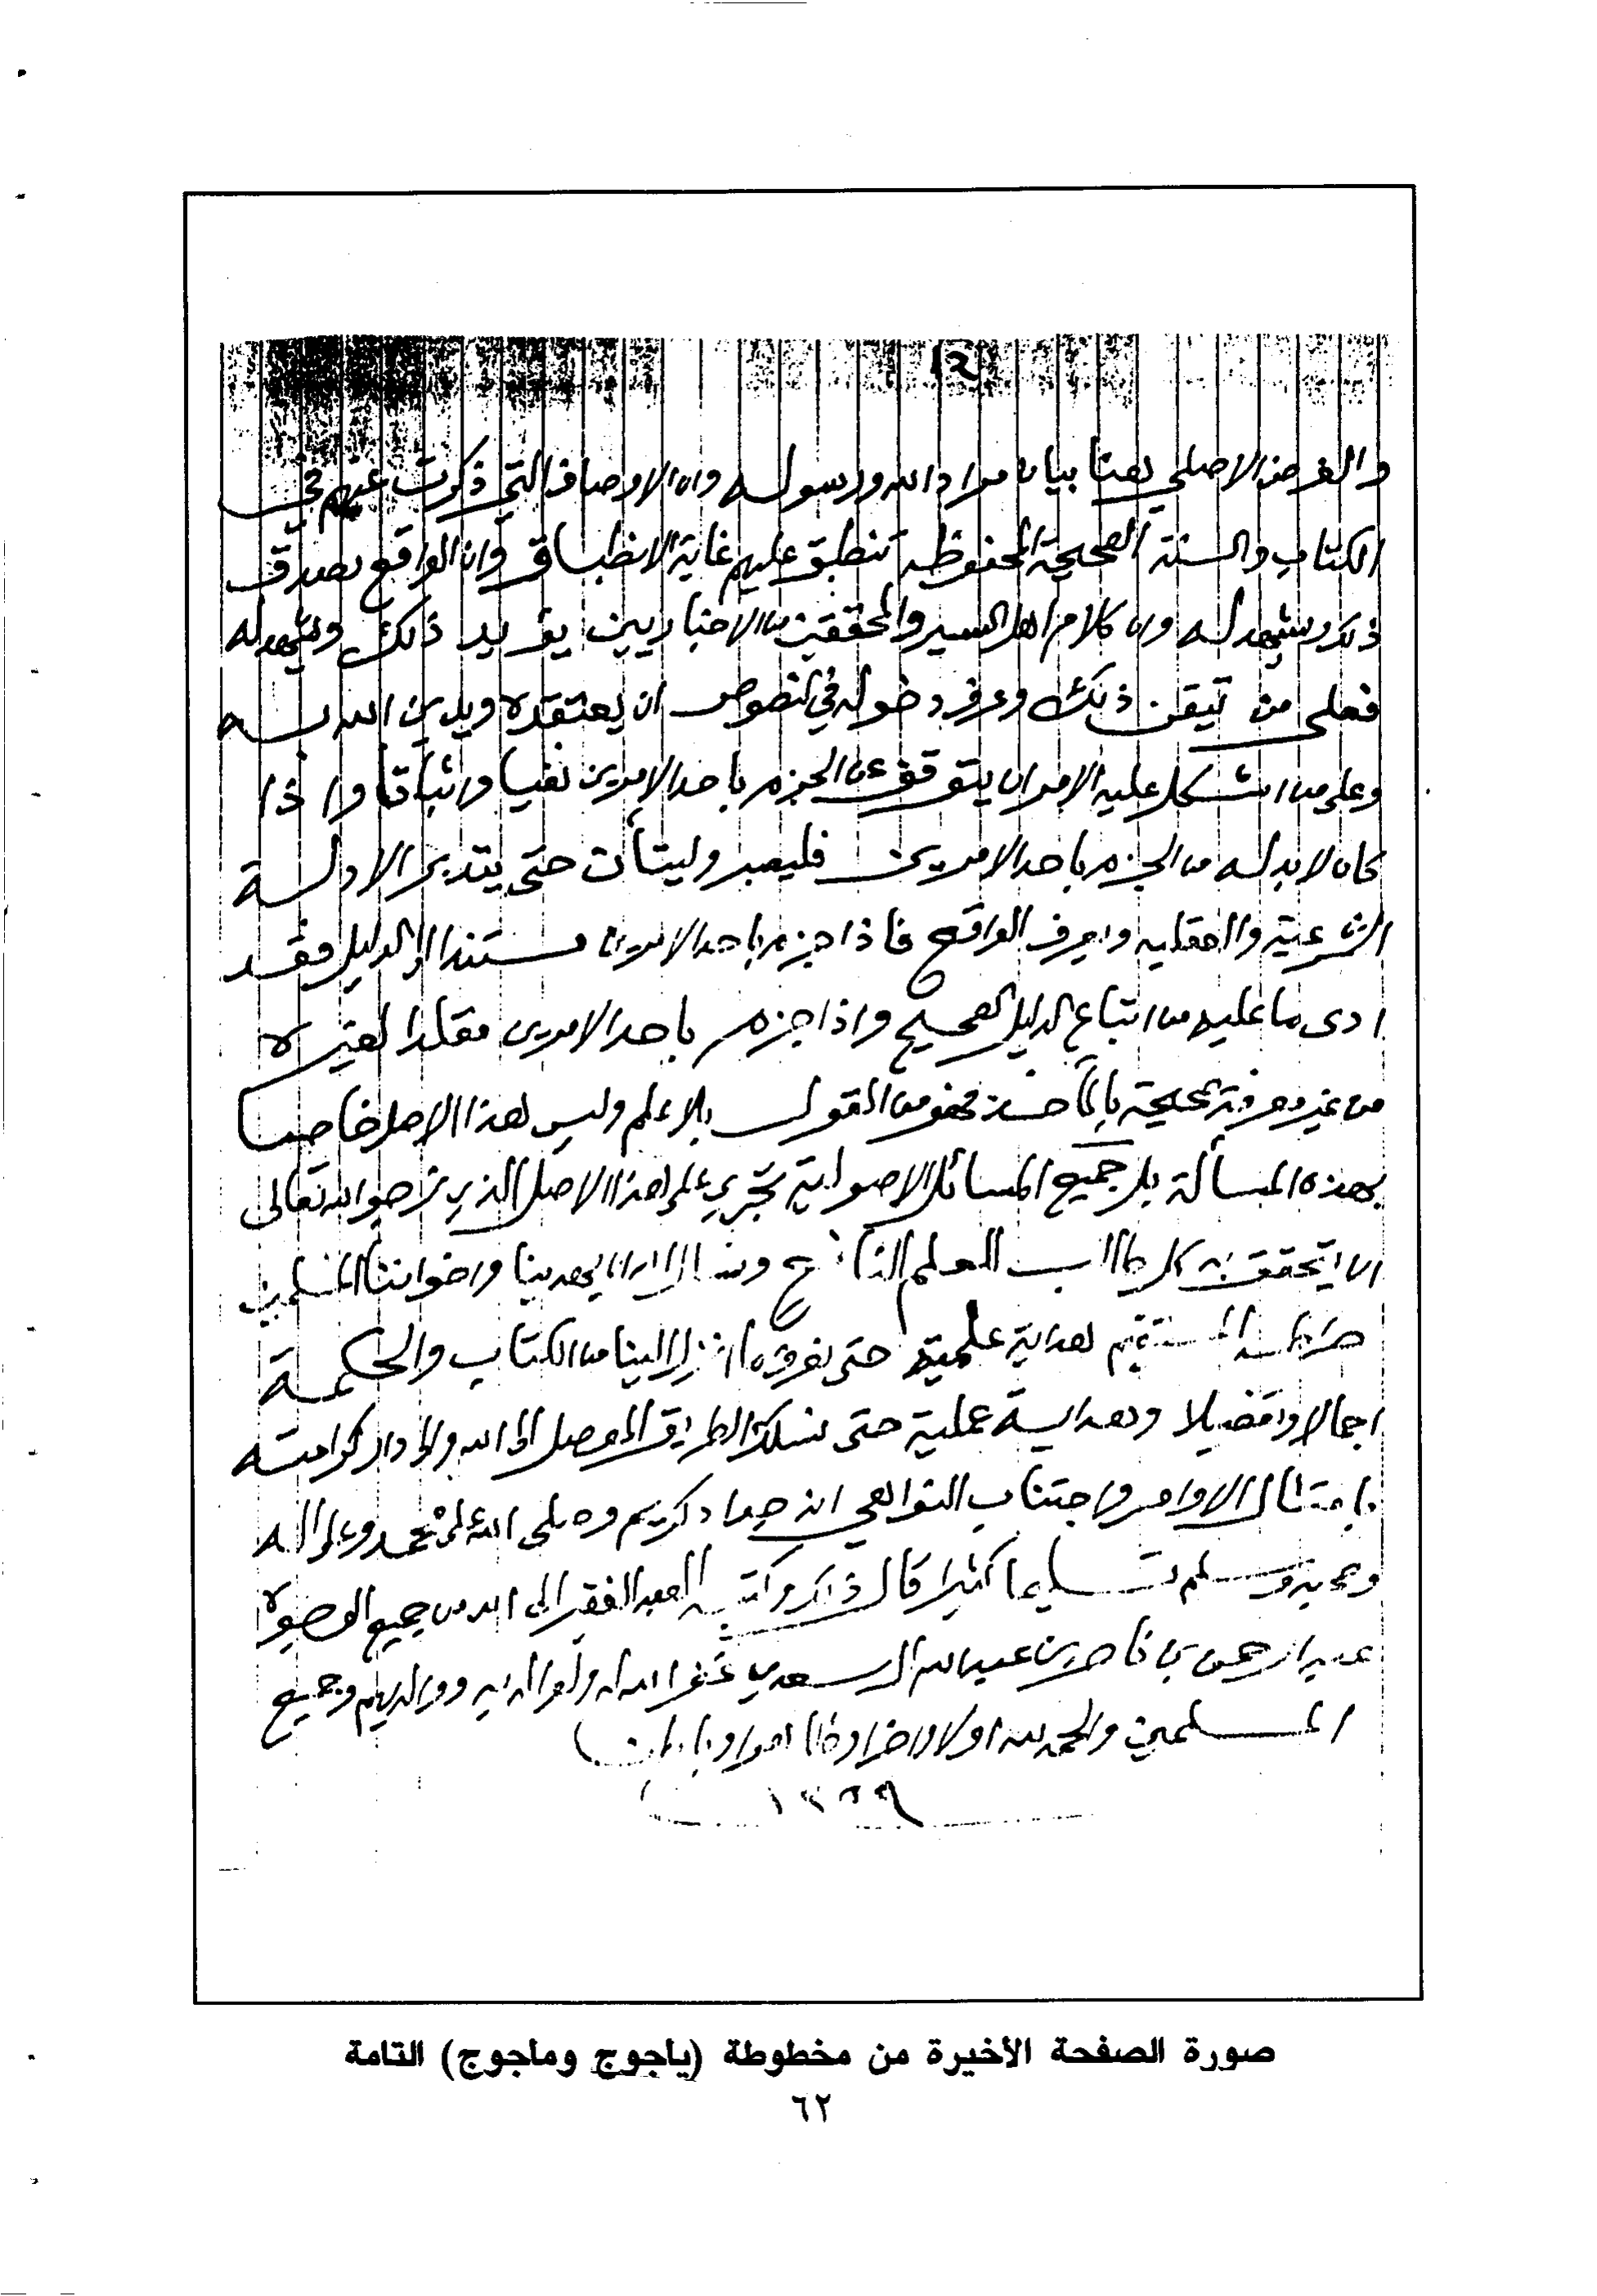 ١٥
والغرض الاصلي هنا بيان مراد الله ورسوله وان الاوصاف التي ذكرت عنهم في
الكتاب والسنة الصحيحة المحفوظه تنطبق عليهم غاية الانطباق وان الواقع يصدق
ذلك ويشهد له وان كلام اهل السير والمحققين من الاخباريين يؤيد ذلك ويشهد له
فعلى من تيقن ذلك وعرف دخوله في النصوص ان يعتقده ويدين الله به
وعلى من اشكل عليه الامر ان يتوقف عن الجزم باحد الامرين نفيا واثباتا واذا
كان لابد له من الجزم باحد الامرين فليصبر وليتأن حتى يتدبر الادلة
الشرعية والعقليه ويعرف الواقع فاذا جزم باحد الامرين مستندا الى الدليل فقد
ادى ما عليه من اتباع الدليل الصحيح واذا جزم باحد الامرين مقلدا لغيره
من غير معرفة صحيحة بالمآخذ فهو من القول بلا علم وليس هذا الاصل خاصا
بهذه المسألة بل جميع المسائل الاصولية تجري على هذا الاصل الذي نرجو الله تعالى
ان يتحقق به كل طالب للعلم النافع ونسأل الله ان يهدينا واخواننا المسلمين
صراطه المستقيم هداية علمية حتى نعرف ما انزل الينا من الكتاب والحكمة
اجمالا وتفصيلا وهداية عملية حتى نسلك الطريق الموصل الى الله والى دار كرامته
بامتثال الاوامر واجتناب النواهي انه جواد كريم وصلى الله على محمد وعلى اله
وصحبه وسلم تسليما كثيرا قال ذلك وكتبه العبد الفقير الى الله من جميع الوجوه
عبد الرحمن بن ناصر بن عبد الله السعدي غفر الله له ولوالديه ووالديهم وجميع
المسلمين والحمد لله اولا واخرا وظاهرا وباطنا
١٣٥٩
صورة الصفحة الأخيرة من مخطوطة (يأجوج ومأجوج) التامة
٦٢